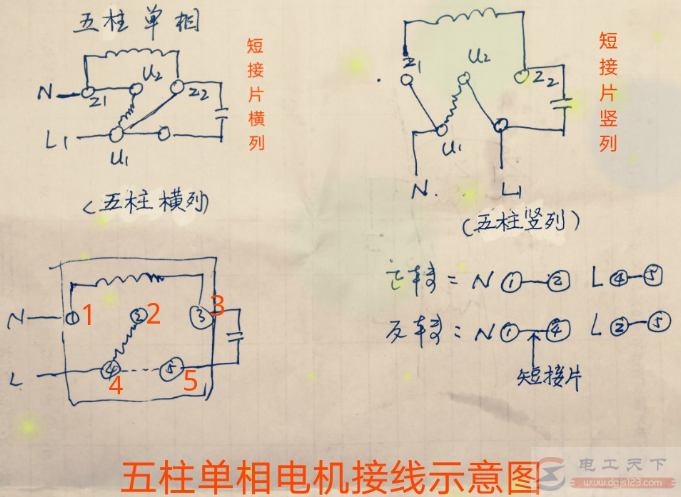 五柱单相
短接片横列
短接片竖列
Z1 U2 Z2
N
L1
U1
(五柱横列)
Z1 U2 Z2
U1
N L1
(五柱竖列)
正转= N ①—② L ④—⑤
反转= N ①—④ L ②—⑤
短接片
N ① 1 ② 2 ③ 3
L ④ 4 ⑤ 5
五柱单相电机接线示意图
电工天下
www.dgjs123.com